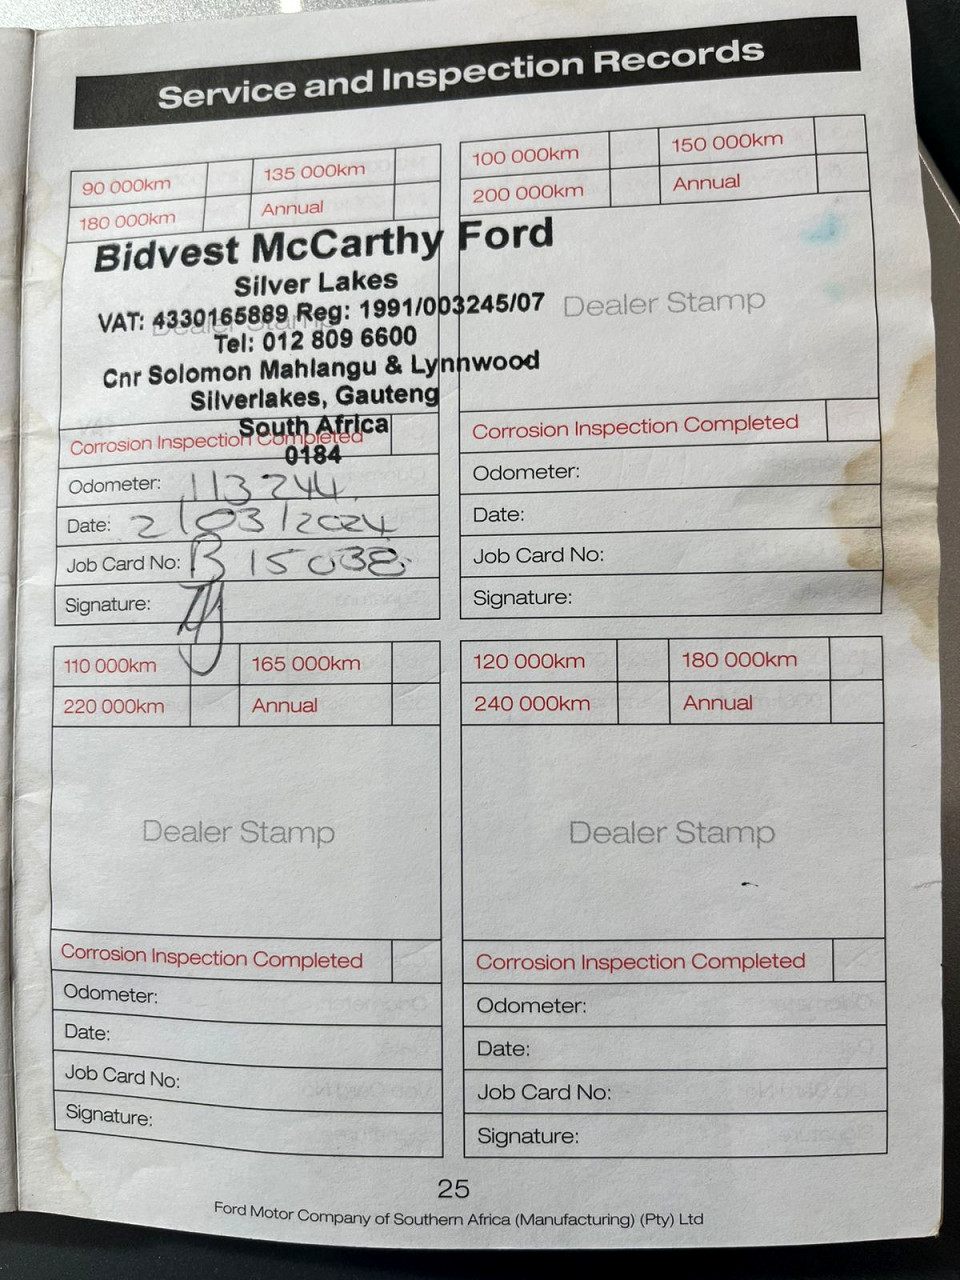 Service and Inspection Records
90 000km 135 000km
180 000km Annual
Bidvest McCarthy Ford
Silver Lakes
VAT: 4330165889 Reg: 1991/003245/07
Dealer Stamp
Tel: 012 809 6600
Cnr Solomon Mahlangu & Lynnwood
Silverlakes, Gauteng
South Africa
0184
Corrosion Inspection Completed
Odometer: 113244
Date: 2/03/2024
Job Card No: B 15038
Signature:
100 000km 150 000km
200 000km Annual
Dealer Stamp
Corrosion Inspection Completed
Odometer:
Date:
Job Card No:
Signature:
110 000km 165 000km
220 000km Annual
Dealer Stamp
Corrosion Inspection Completed
Odometer:
Date:
Job Card No:
Signature:
120 000km 180 000km
240 000km Annual
Dealer Stamp
Corrosion Inspection Completed
Odometer:
Date:
Job Card No:
Signature:
25
Ford Motor Company of Southern Africa (Manufacturing) (Pty) Ltd